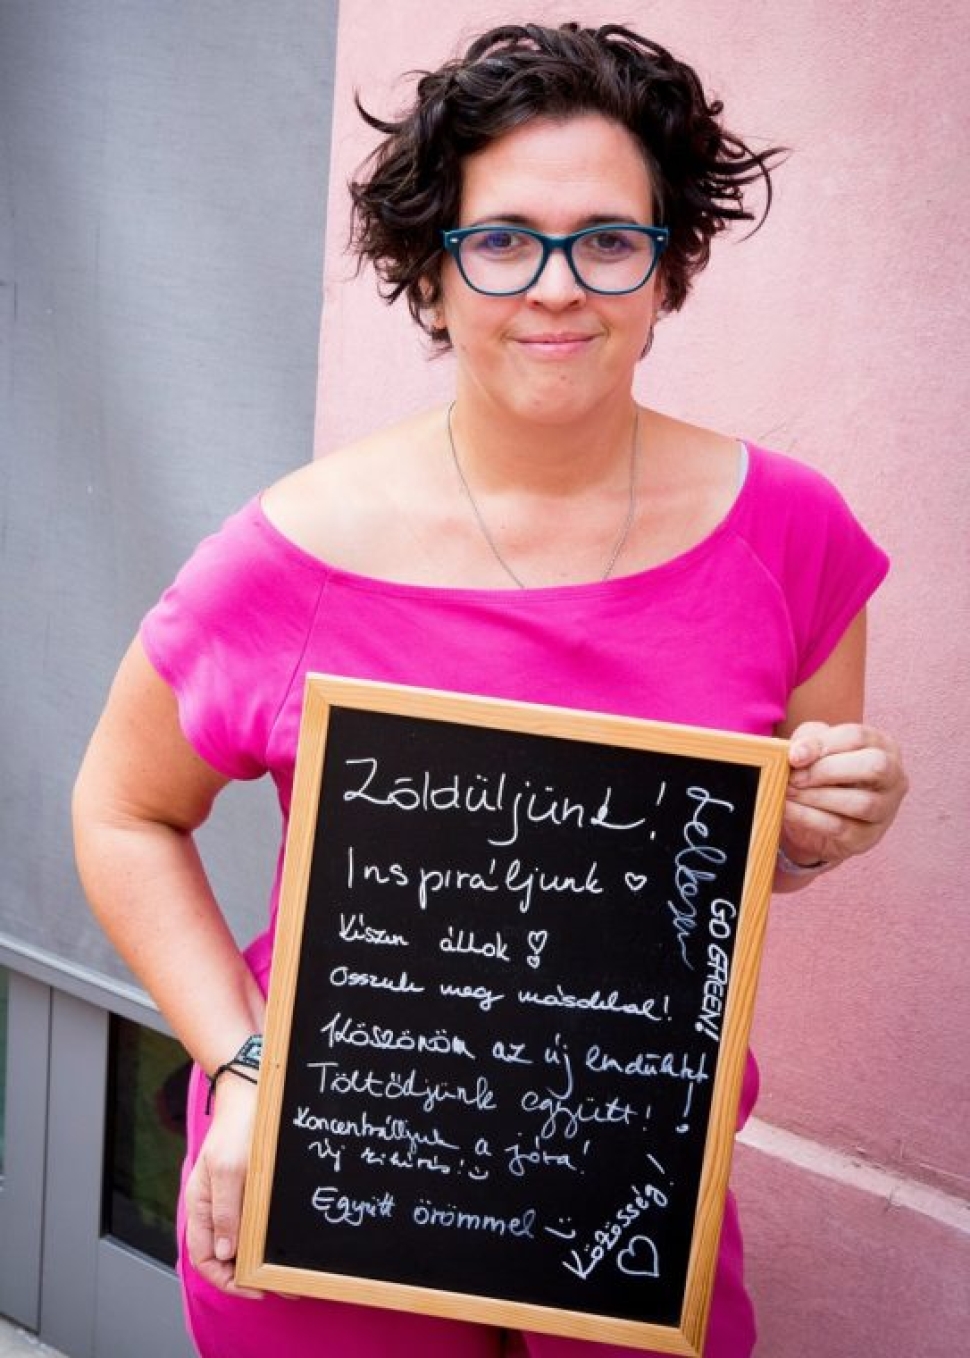 Zöldüljünk!
Inspiráljunk ♡
Kíszen állok
Osszuk meg másokkal!
Köszönöm az új lendületet!
Töltődjünk együtt!
Koncentráljunk a jóra!
Új kihívás! :)
Együtt örömmel :)
Közösség! ♡
GO GREEN!